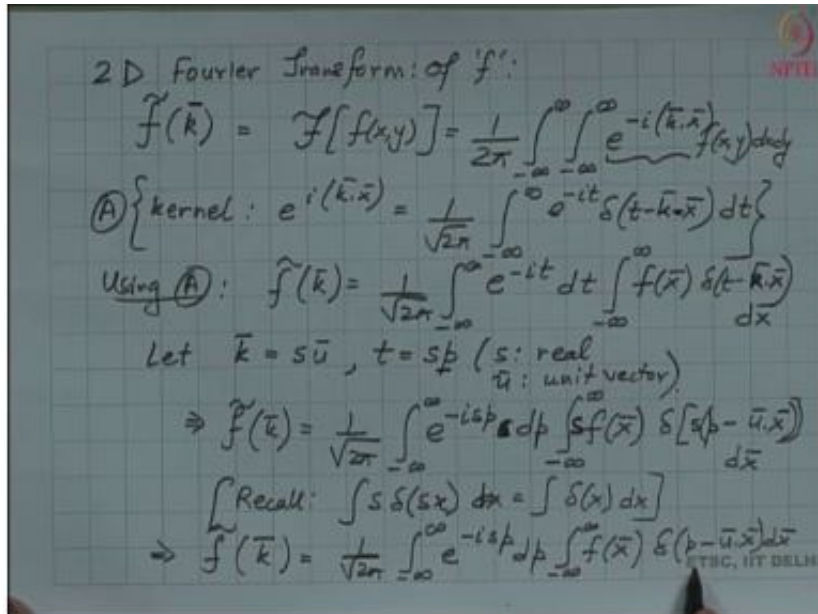 NPTEL
2D Fourier Transform: of 'f':
f̃(k̄) = ℱ[f(x,y)] = 1/2π ∫_{-∞}^{∞} ∫_{-∞}^{∞} e^{-i(k̄.x̄)} f(x,y) dxdy
Ⓐ { kernel: e^{i(k̄.x̄)} = 1/√2π ∫_{-∞}^{∞} e^{-it} δ(t-k̄.x̄) dt }
Using Ⓐ: f̃(k̄) = 1/√2π ∫_{-∞}^{∞} e^{-it} dt ∫_{-∞}^{∞} f(x̄) δ(t-k̄.x̄) dx̄
Let k̄ = sū, t = sp (s: real
ū: unit vector)
⇒ f̃(k̄) = 1/√2π ∫_{-∞}^{∞} e^{-isp} dp ∫_{-∞}^{∞} sf(x̄) δ[s(p - ū.x̄)] dx̄
[Recall: ∫ s δ(sx) dx = ∫ δ(x) dx]
⇒ f̃(k̄) = 1/√2π ∫_{-∞}^{∞} e^{-isp} dp ∫_{-∞}^{∞} f(x̄) δ(p - ū.x̄) dx̄
ETSC, IIT DELH